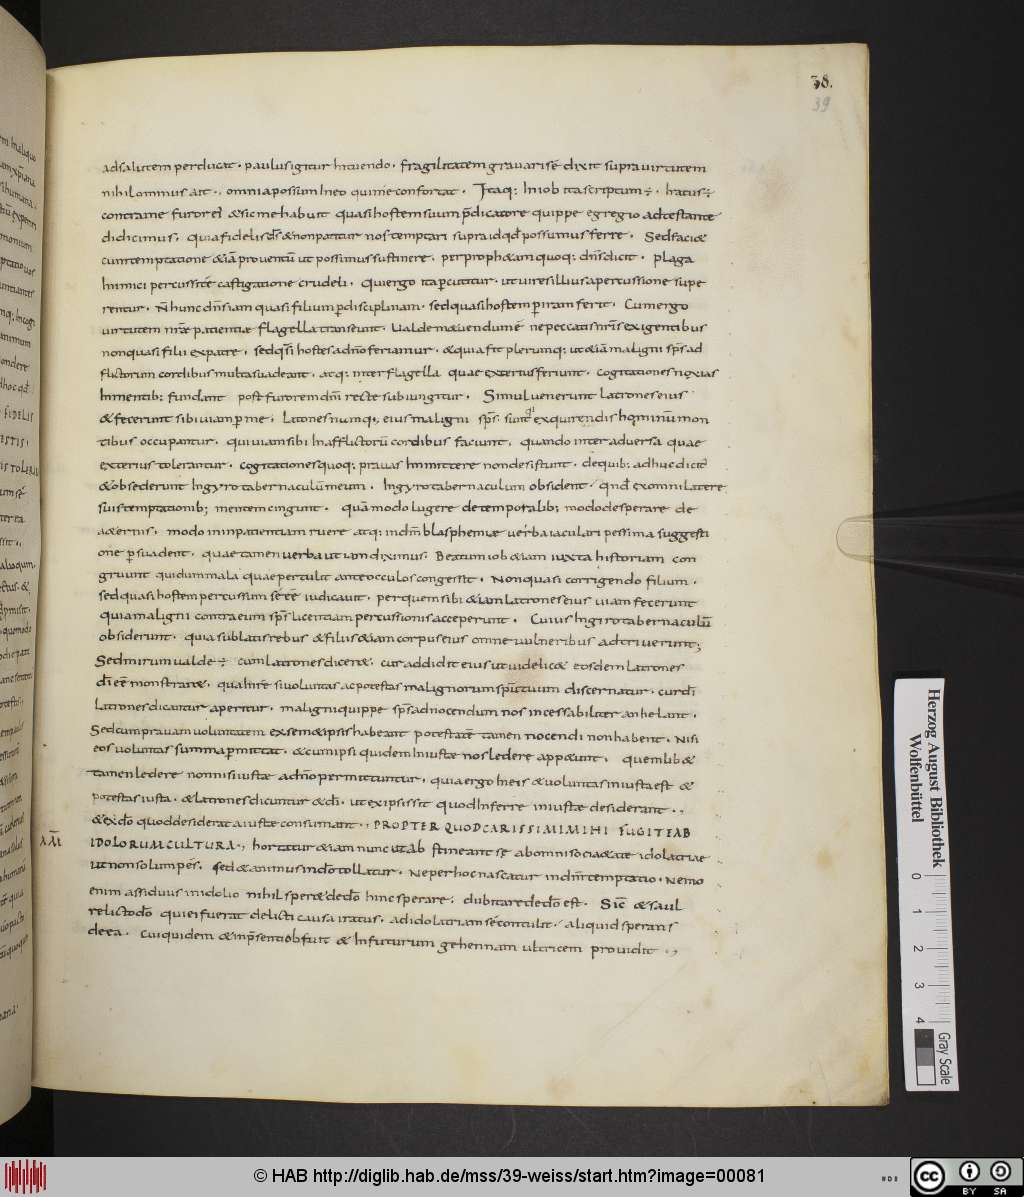 38.
39
ad salutem perducat. paulus igitur intuendo. fragilitatem gravari sē dixit supra virtutem
nihilominus ait., omnia possum in eo qui me confortat. Itaq: in iob ita scriptum ÷. Iratus ÷
contra me furor ei & sic me habuit quasi hostem suum p̄dicatore quippe egregio adtestante
didicimus. quia fidelis d̄s & non patitur nos temptari supra id qd̄ possumus ferre. Sed faci&
cum temptatione &iā proventū ut possimus sustinere. per proph&am quoq; dn̄s dicit. plaga
inimici percussi té castigatione crudeli. Qui ergo ita percutitur. ut vires illius a percussione supe
rentur. N̄ hunc dn̄s iam quasi filium p disciplinam. sed quasi hostem p iram ferit. Cum ergo
virtutem nr̄ae patientiae flagella transeunt. Valde m&uendumē ne peccatis nr̄is exigentibus
non quasi filii ex patre. sed qsi hostes a dn̄o feriamur. & quia fit plerumq; ut &iā maligni sp̄s ad
flictorum cordibus multa suadeant. atq; inter flagella quae exterius feriunt. cogitationes noxias
in mentib; fundant post furorem dn̄i recte subiungitur. Simul venerunt latrones eius
& fecerunt sibi viam p me. Latrones namq, eius maligni sp̄s sunt qi exquirendis hominū mon
tibus occupantur. qui viam sibi in afflictorū cordibus faciunt. quando inter adversa quae
exterius tolerantur. cogitationes quoq; pravas inmittere non desistunt. de quib; adhuc dicit
& obsederunt in gyro tabernaculū meum. In gyro tabernaculum obsident qnd̄ ex omni latere
suis temptationib; mentem cingunt. quā modo lugere de temporalib; modo desperare de
a&ernis. modo in inpatientiam ruere atq; in dm̄ blasphemiae verba iaculari pessima suggesti
one p suadent. quae tamen verba ut iam diximus. Beatum iob &iam iuxta historiam con
gruunt qui dum mala quae pertulit ante occulos congessit. Non quasi corrigendo filium.
sed quasi hostem percussum sē eē iudicavit. per quem sibi &iam latrones eius viam fecerunt
quia maligni contra eum sp̄s licentiam percussionis acceperunt. Cuius in gyro tabernaculū
obsiderunt. quia sublatis rebus & filiis &iam corpus eius omne vulneribus adtriverunt;
Sed mirum valde ÷ cum latrones dicer&. cur addidit eius ut videlic& eosdem latrones
dī eē monstrar&. qua in re si voluntas ac potestas malignorum sp̄ituum discernatur. cur dī
latrones dicantur aperitur. maligni quippe sp̄s ad nocendum nos incessabiliter anhelant.
Sed cum pravam voluntatem ex sem&ipsis habeant potestatē tamen nocendi non habent. Nisi
eos voluntas summa p mittat. & cum ipsi quidem iniustae nos ledere app&unt. quemlib&
tamen ledere non nisi iustae a dn̄o permittuntur, quia ergo in eis & voluntas iniusta est &
potestas iusta. & latrones dicuntur & dī. ut ex ipsis sit quod inferre iniustae desiderant.,
& ex dō quod desiderata iustae consumant., PROPTER QUOD CARISSIMI MIHI FUGITE AB
IDOLORUM CULTURA., hortatur &iam nunc ut ab stineant se abominosocia&ate idolatriae
ut non solum pes. sed & animus in dō tollatur. Ne per hoc nascatur in dn̄m temptatio. Nemo
enim assiduus in idolio nihil sper& de dō hinc sperare. dubitare de dō est. Sic̄ & saul
relicto dō qui ei fuerat delicti causa iratus. ad idolatriam sē contulit. aliquid sperans
de ea. Cui quidem & in p̄senti obfuit & in futurum gehennam ultricem providit.,
Herzog August Bibliothek
Wolfenbüttel
0 1 2 3 4
Gray Scale
© HAB http://diglib.hab.de/mss/39-weiss/start.htm?image=00081
cc BY SA